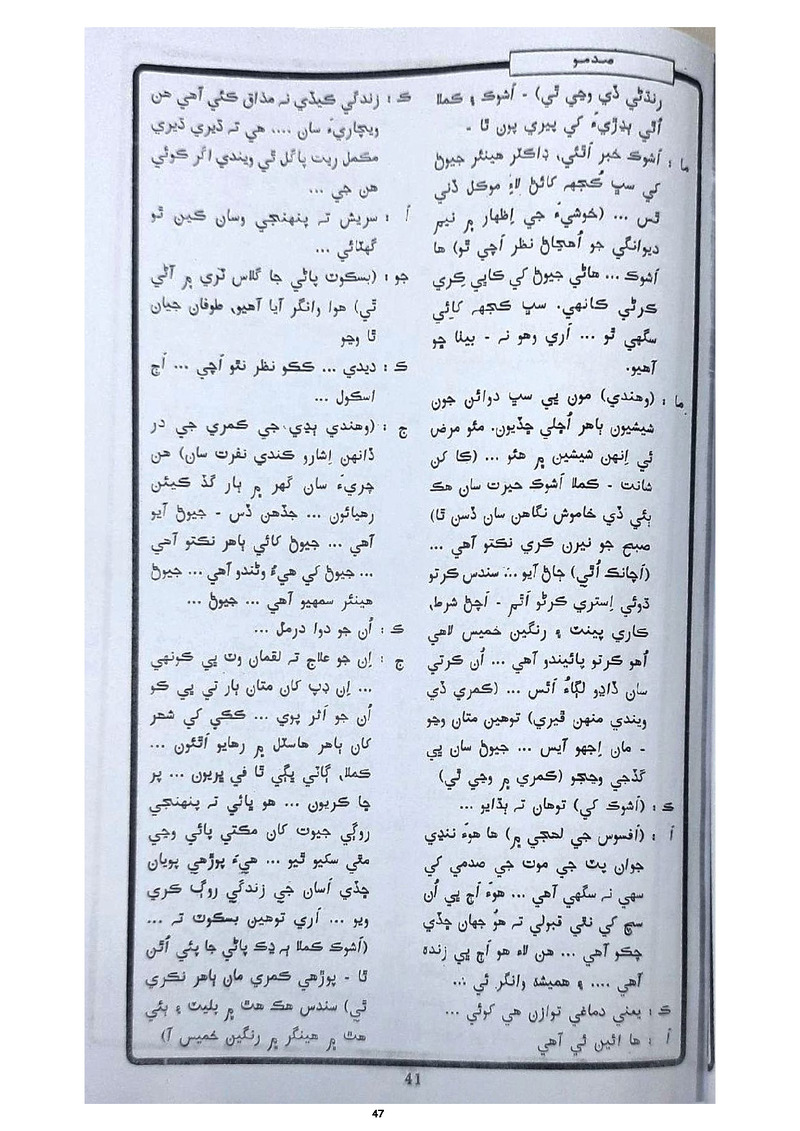 صدمو
رنڌڻي ڏي وڃي ٿي) - اَشوڪ ۽ ڪملا
اُٿي ٻڌڙيءَ کي پيري پون ٿا -
ما : اَشوڪ خبر اَٿئي، ڊاڪٽر هينئر جيوڻ
کي سڀ ڪُجهہ کائڻ لاءِ موڪل ڏني
ٿس ... (خوشيءَ جي اِظهار ۾ نيم
ديوانگي جو اُهڃاڻ نظر اَچي ٿو) ها
اَشوڪ ... هاڻي جيوڻ کي ڪاٻي ڪِري
ڪرڻي ڪانهي. سڀ ڪجهہ کائِي
سگهي ٿو ... اَري وهو نہ - بيٺا ڇو
آهيو.
ما : (وهندي) مون ٻي سڀ دوائن جون
شيشيون ٻاهر اُڇلي ڇڏيون. مئو مرض
ئي اِنهن شيشين ۾ هئو ... (ڪا کن
شانت - ڪملا اَشوڪ حيرت سان هڪ
ٻئي ڏي خاموش نگاهن سان ڏسن ٿا)
صبح جو نيرن ڪري نڪتو آهي ...
(اَچانڪ اُٿي) ڄاڻ آيو ... سندس ڪرتو
ڌوئي اِستري ڪرڻو اَٿم - اَچڻ شرط،
ڪاري پينٽ ۽ رنگين خميس لاهي
اُهو ڪرتو پائيندو آهي ... اُن ڪرتي
سان ڏاڍو لڳاءُ اَٿس ... (ڪمري ڏي
ويندي منهن ڦيري) توهين متان وڃو
- مان اِجهو آيس ... جيوڻ سان ٻي
گڏجي وڃجو (ڪمري ۾ وڃي ٿي)
ڪ : (اَشوڪ کي) توهان تہ ٻڌايو ...
اَ : (اَفسوس جي لهجي ۾) ها هوءَ ننڍي
جوان پٽ جي موت جي صدمي کي
سهي نہ سگهي آهي ... هوءَ اَڄ ٻي اُن
سچ کي نٿي قبولي تہ هُو جهان ڇڏي
چڪو آهي ... هن لاءِ هو اَڄ ٻي زنده
آهي .... ۽ هميشه وانگر ئي ...
ڪ : يعني دماغي توازن هي کوئي ...
اَ : ها ائين ئي آهي
ڪ : زندگي ڪيڏي نہ مذاق ڪئي آهي هن
ويچاريءَ سان .... هي تہ ڌيري ڌيري
مڪمل ريت پاگل ٿي ويندي اگر ڪوئي
هن جي ...
اَ : سريش تہ پنهنجي وسان ڪين ٿو
گهٽائي ...
جو : (بسڪوٽ پاڻي جا گلاس ٽري ۾ آڻي
ٿي) هوا وانگر آيا آهيو، طوفان جيان
ٿا وڃو
ڪ : ديدي ... ڪڪو نظر نٿو اَچي ... اَڄ
اسڪول ...
ج : (وهندي ٻڍي جي ڪمري جي در
ڏانهن اِشارو ڪندي نفرت سان) هن
چريءَ سان گهر ۾ ٻار گڏ ڪيئن
رهيائون ... جڏهن ڏس - جيوڻ آيو
آهي ... جيوڻ کائي ٻاهر نڪتو آهي
... جيوڻ کي هيءُ وڻندو آهي ... جيوڻ
هينئر سمهيو آهي ... جيوڻ ...
ڪ : اُن جو دوا درمل ...
ج : اِن جو علاج تہ لقمان وٽ ٻي ڪونهي
... اِن ڊپ کان متان ٻار تي ٻي ڪو
اُن جو اَثر پوي ... ڪڪي کي شهر
کان ٻاهر هاسٽل ۾ رهايو اَٿئون ...
ڪملا، ڳاٽي ڀڳي ٿا في ڀريون ... پر
ڇا ڪريون ... هو ڀائي تہ پنهنجي
روڳي جيوت کان مڪتي پائي وڃي
مٿي سکيو ٿيو ... هيءَ پوڙهي پويان
ڇڏي اَسان جي زندگي روڳ ڪري
ويو ... اَري توهين بسڪوٽ تہ ...
(اَشوڪ ڪملا ٻہ ڍڪ پاڻي جا پئي اُٿن
ٿا - پوڙهي ڪمري مان ٻاهر نڪري
ٿي) سندس هڪ هٿ ۾ پليٽ ۽ ٻئي
هٿ ۾ هينگر ۾ رنگين خميس آ)
41
47